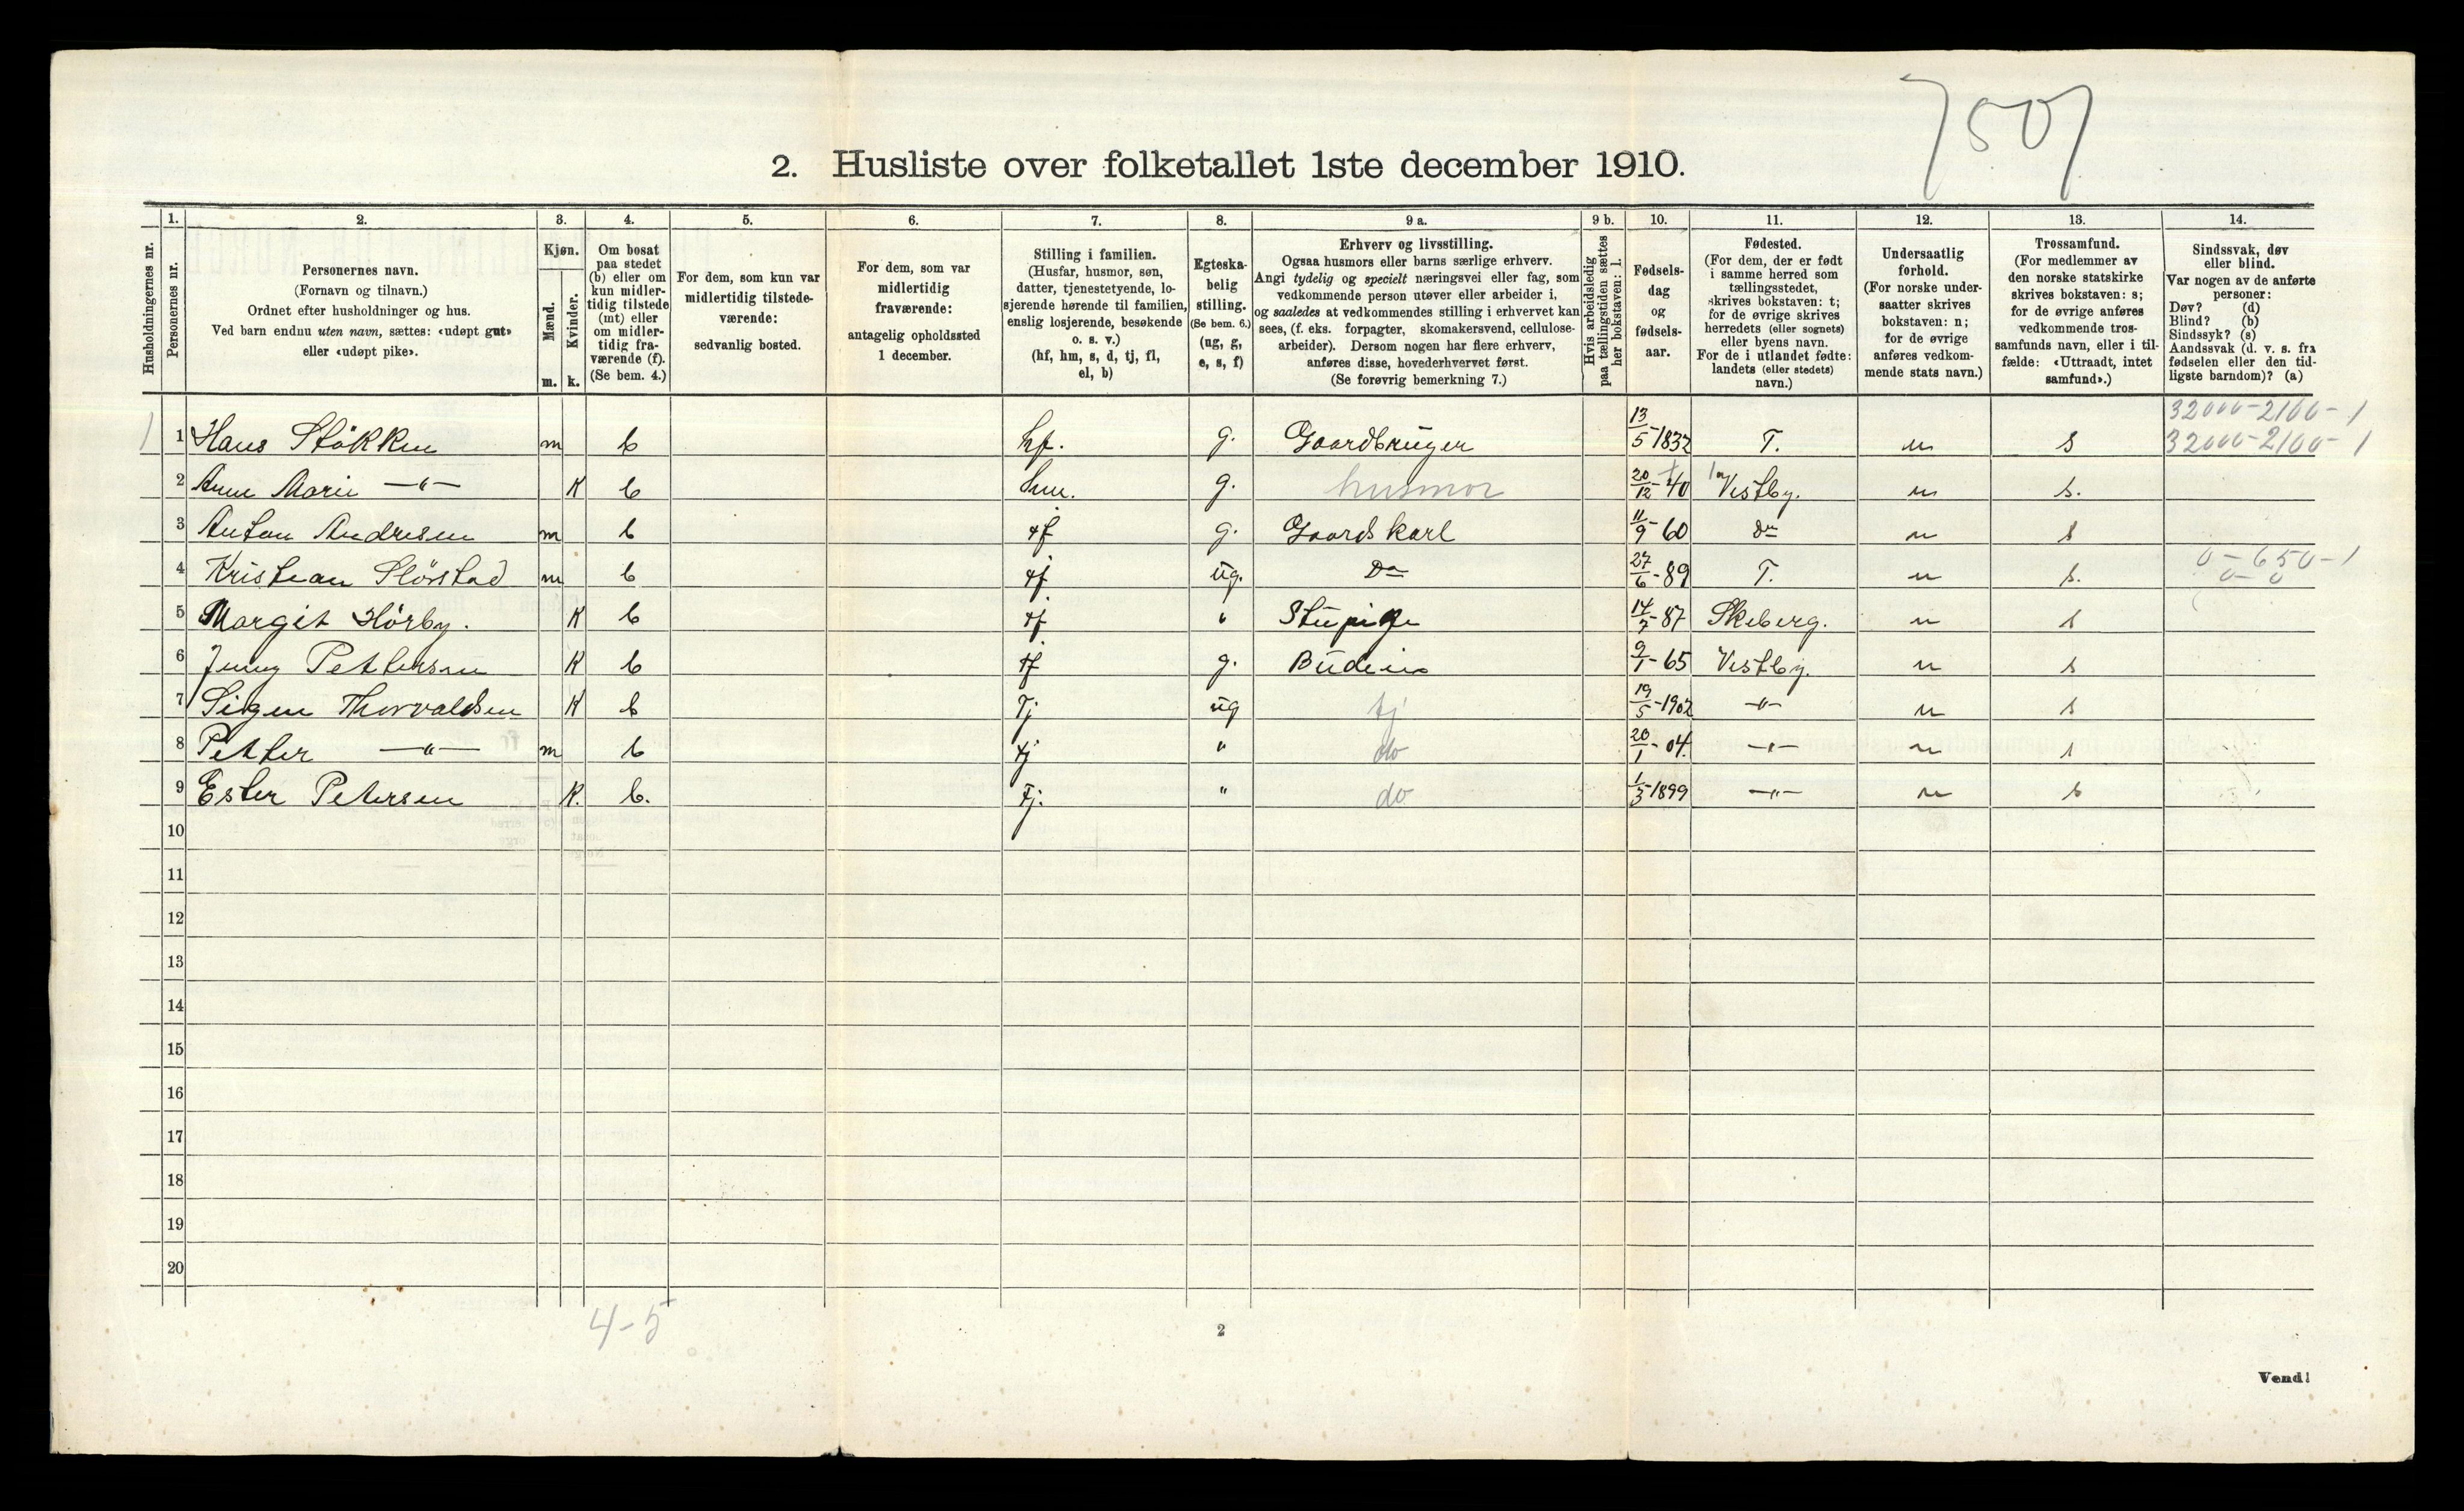 7507
2. Husliste over folketallet 1ste december 1910.
Husholdningernes nr.
1. Personernes nr.
2. Personernes navn. (Fornavn og tilnavn.) Ordnet efter husholdninger og hus. Ved barn endnu uten navn, sættes: «udøpt gut» eller «udøpt pike».
3. Kjøn. Mænd. m. Kvinder. k.
4. Om bosat paa stedet (b) eller om kun midlertidig tilstede (mt) eller om midlertidig fraværende (f). (Se bem. 4.)
5. For dem, som kun var midlertidig tilstedeværende: sedvanlig bosted.
6. For dem, som var midlertidig fraværende: antagelig opholdssted 1 december.
7. Stilling i familien. (Husfar, husmor, søn, datter, tjenestetyende, losjerende hørende til familien, enslig losjerende, besøkende o. s. v.) (hf, hm, s, d, tj, fl, el, b)
8. Egteskabelig stilling. (Se bem. 6.) (ug, g, e, s, f)
9 a. Erhverv og livsstilling. Ogsaa husmors eller barns særlige erhverv. Angi tydelig og specielt næringsvei eller fag, som vedkommende person utøver eller arbeider i, og saaledes at vedkommendes stilling i erhvervet kan sees, (f. eks. forpagter, skomakersvend, cellulosearbeider). Dersom nogen har flere erhverv, anføres disse, hovederhvervet først. (Se forøvrig bemerkning 7.)
9 b. Hvis arbeidsledig paa tællingstiden sættes her bokstaven: l.
10. Fødselsdag og fødselsaar.
11. Fødested. (For dem, der er født i samme herred som tællingsstedet, skrives bokstaven: t; for de øvrige skrives herredets (eller sognets) eller byens navn. For de i utlandet fødte: landets (eller stedets) navn.)
12. Undersaatlig forhold. (For norske undersaatter skrives bokstaven: n; for de øvrige anføres vedkommende stats navn.)
13. Trossamfund. (For medlemmer av den norske statskirke skrives bokstaven: s; for de øvrige anføres vedkommende trossamfunds navn, eller i tilfælde: «Uttraadt, intet samfund».)
14. Sindssvak, døv eller blind. Var nogen av de anførte personer: Døv? (d) Blind? (b) Sindssyk? (s) Aandssvak (d. v. s. fra fødselen eller den tidligste barndom)? (a)
32000-2100-1
1 1 Hans Støkken m b hf. g. Gaardbruger 13/5-1832 T. n s 32000-2100-1
2 Anne Marie —"— K b hm. g. husmor 20/12-40 Vestby. n s.
3 Anton Andresen m b tj g. Gaardskarl 11/9-60 Do n s
4 Kristian m b tj ug. Do 27/6-89 T. n s. 0-650-1
0-0
5 Margit Hörby. K b tj " Stupige 14/7-87 Skeberg. n s
6 Jenny Pettersen K b tj g. Budeie 9/1-65 Vestby. n s
7 Signe Thorvaldsen K b Tj ug tj 19/5-1902 —"— n s
8 Petter —"— m b tj " do 20/1-04. —"— n s
9 Ester Petersen K. b. Tj. " do 1/3-1899 —"— n s
10
11
12
13
14
15
16
17
18
19
20
4-5
2
Vend!